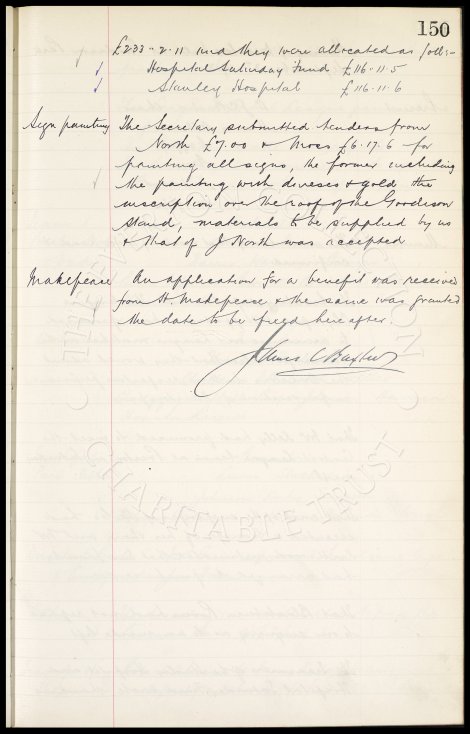 150
£233-2-11 and they were allocated as folls:-
Hospital Saturday Fund £116-11-5
Stanley Hospital £116-11-6
Sign painting The Secretary submitted tenders from
North £7.00 & Moss £6-17-6 for
painting all signs, the former including
the painting with & gold the
inscription over the roof of the Goodison
Stand, materials to be supplied by us
& that of J North was accepted
Makepeace An application for a benefit was received
from H. Makepeace & the same was granted
the date to be fixed hereafter.
James C Baxter
CHARITABLE TRUST